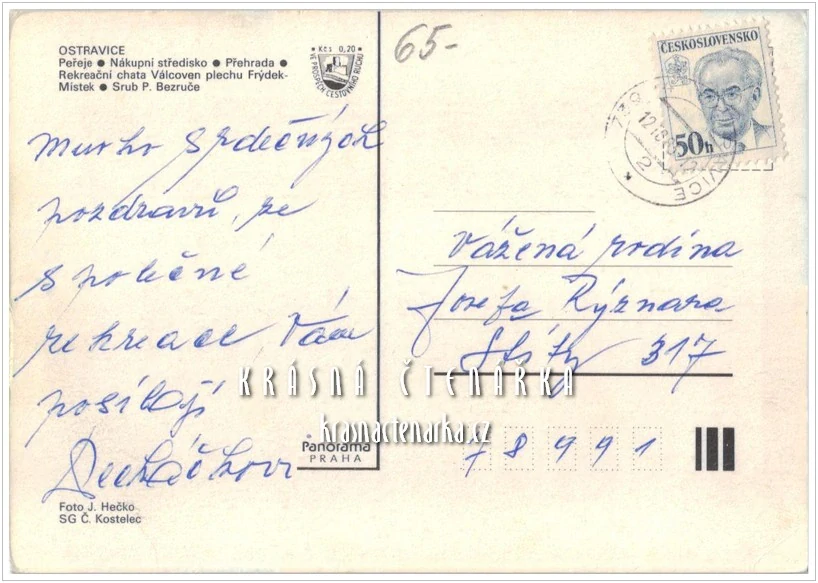 65-
OSTRAVICE
Peřeje ● Nákupní středisko ● Přehrada ●
Rekreační chata Válcoven plechu Frýdek-
Místek ● Srub P. Bezruče
Kčs 0,20
VE PROSPĚCH CESTOVNÍHO RUCHU
ČESKOSLOVENSKO
50h
2
mnoho srdečných
pozdravů, ze
společné
rekreace Vám
posílají
Vážená rodina
Josefa Rýznara
Štíty 317
KRÁSNÁ ČTENÁRKA
krasnactenarka.cz
78991
Panorama
PRAHA
Foto J. Hečko
SG Č. Kostelec